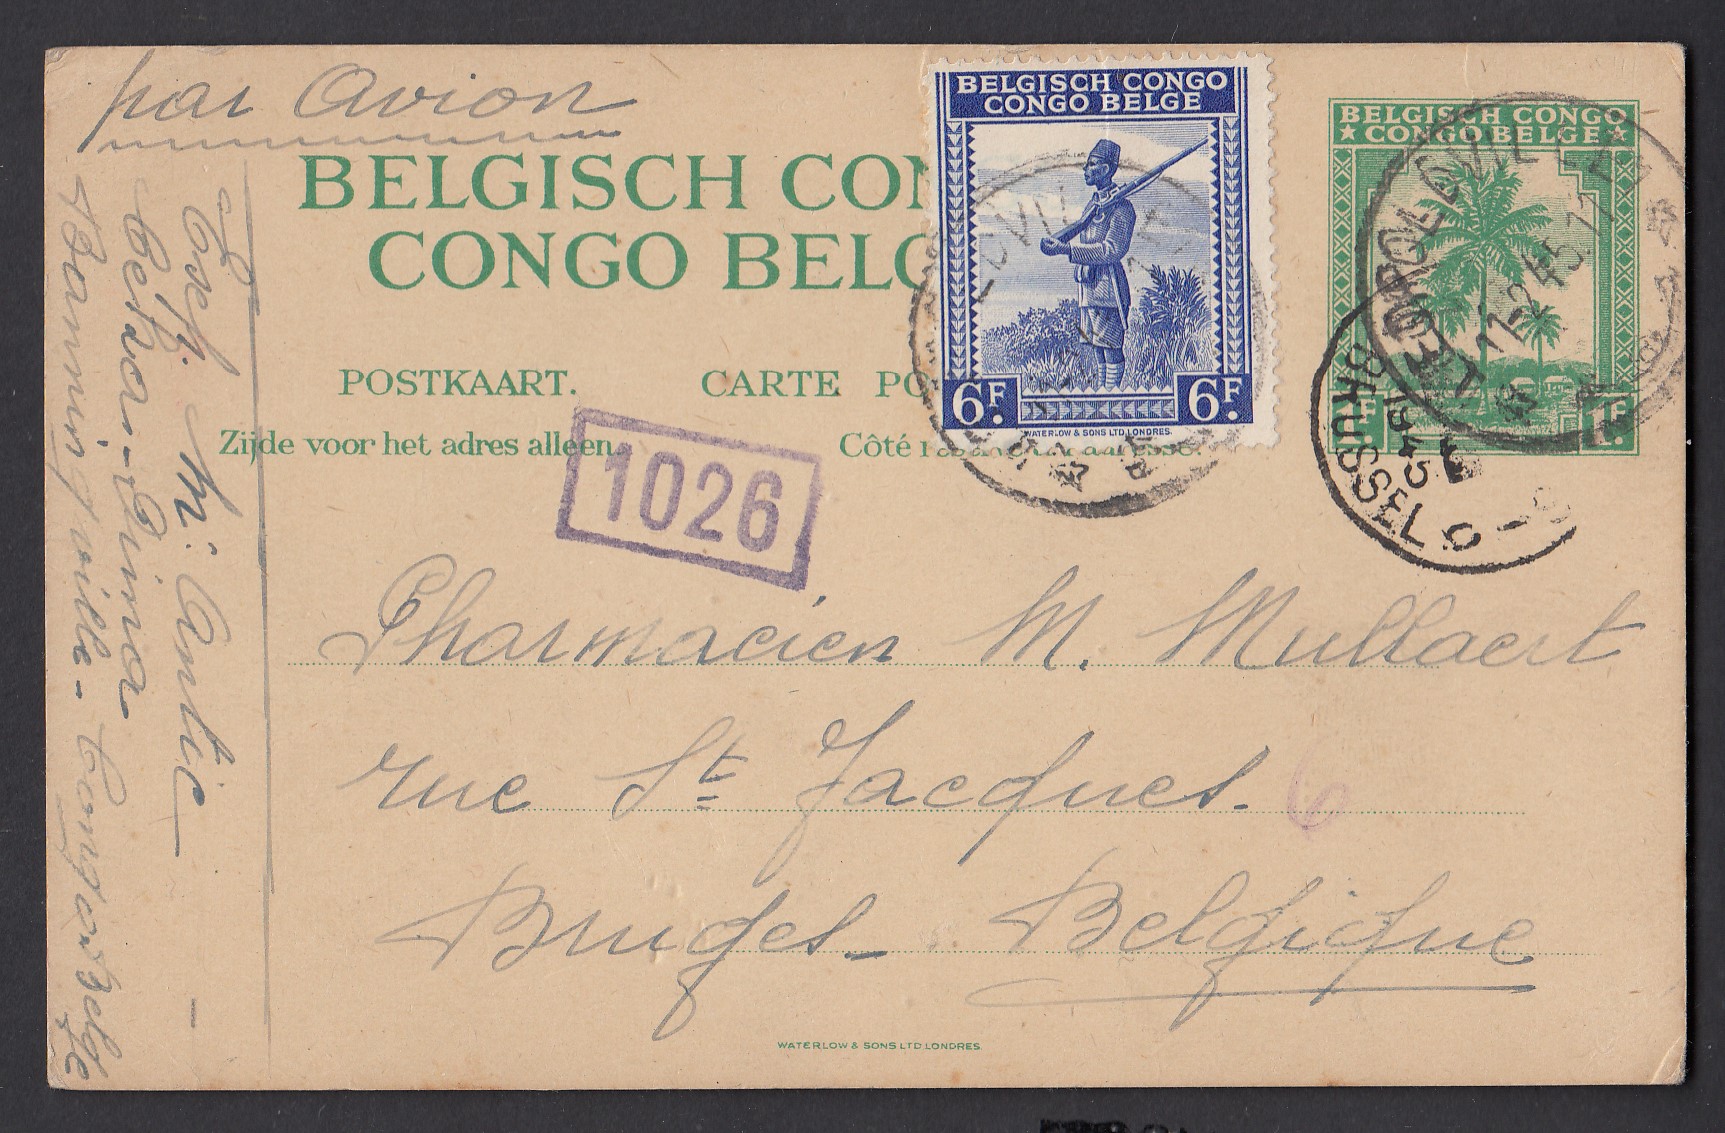 par Avion
BELGISCH CON
CONGO BELG
POSTKAART. CARTE PO
Zijde voor het adres alleen.
Côté r
BELGISCH CONGO
CONGO BELGE
6F. 6F.
WATERLOW & SONS LTD. LONDRES.
BELGISCH CONGO
★ CONGO BELGE ★
1F. 1F.
LEOPOLDVILLE
17-2-45.11
BRUSSEL
1945
1026
Pharmacien M. Mullaert
rue St Jacques.
6
Bruges - Belgique
WATERLOW & SONS LTD LONDRES.
Banningville - Congo Belge